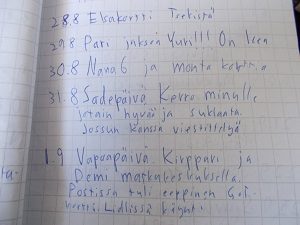 28.8 Elsakortti Tsekistä
29.8 Pari jaksoa Yuri!!! On Icen
30.8 Nana 6 ja monta
31.8 Sadepäivä Kerro minulle
jotain hyvää ja suklaata.
Jossun kanssa viestittelyä
1.9 Vapaapäivä Kirppari ja
Demi matkakeskuksella.
Postissa tuli eeppinen
kortti Lidlissä käynti